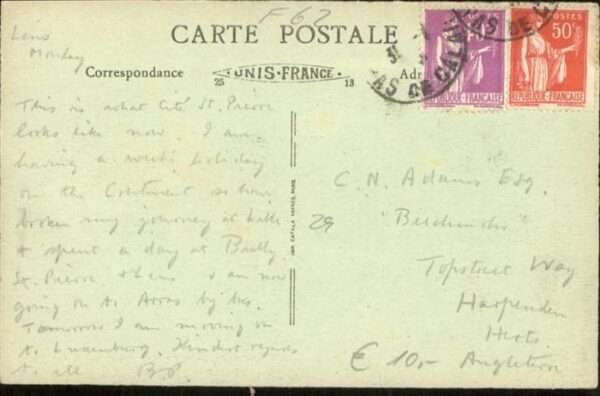 F 62
Lens
Monday
CARTE POSTALE
Correspondance
UNIS-FRANCE
25
13
Adr
PAS DE CALAIS
RÉPUBLIQUE FRANÇAISE
POSTES
50c
RÉPUBLIQUE FRANÇAISE
This is what Cité St. Pierre
looks like now. I am
having a week's holiday
on the Continent so have
broken my journey at Lille
& spent a day at Bully
St. Pierre & Lens. I am now
going on to Arras by bus.
Tomorrow I am moving on
to Luxemburg. Kindest regards
to all B.P.
IMP. CATALA FRERES, PARIS
29
C. N. Adams Esq.
Topstreet Way
Harpenden
Herts.
Angleterre
€ 10,-